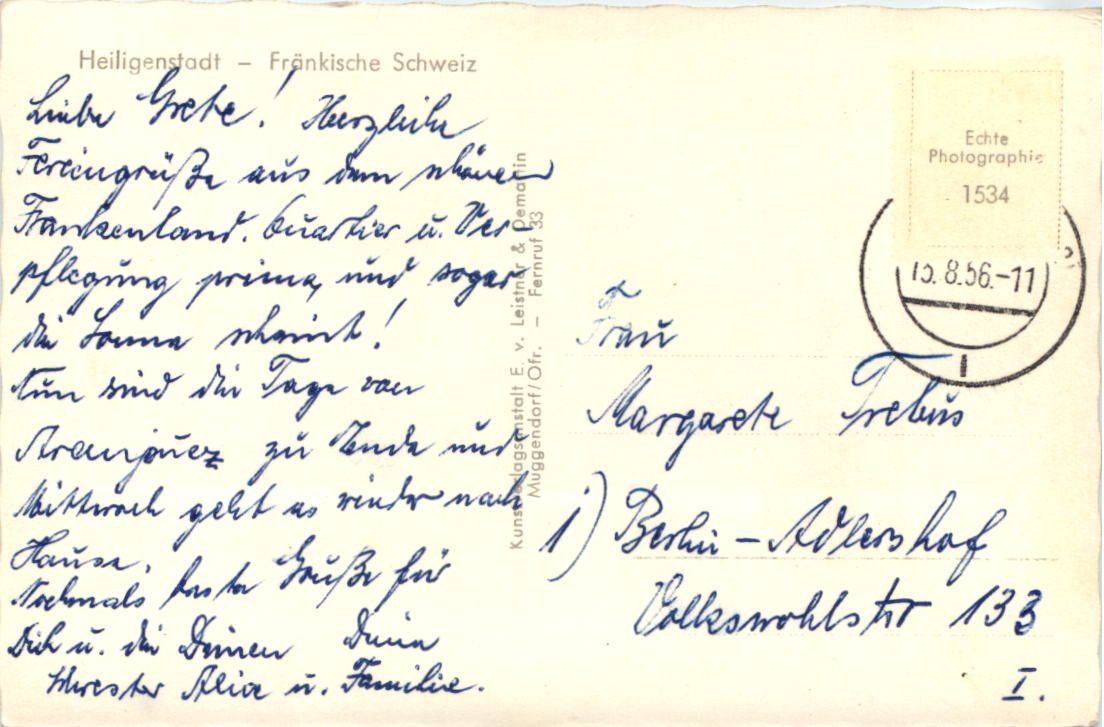 Heiligenstadt – Fränkische Schweiz
Liebe Grete! Herzliche
Feriengrüße aus dem schönen
Frankenland. Quartier u. Ver-
pflegung prima, und sogar
die Sonne scheint!
Nun sind die Tage von
Aranjuez zu Ende und
Mittwoch geht es wieder nach
Hause.
Nochmals beste Grüße für
Dich u. die Deinen Deine
Schwester Alice u. Familie.
Kunstverlagsanstalt E. v. Leistner & Demartin
Muggendorf/Ofr. – Fernruf 33
Echte
Photographie
1534
15.8.56.-11
Frau
Margarete Trebus
1) Berlin – Adlershof
Volkswohlstr 133
I.